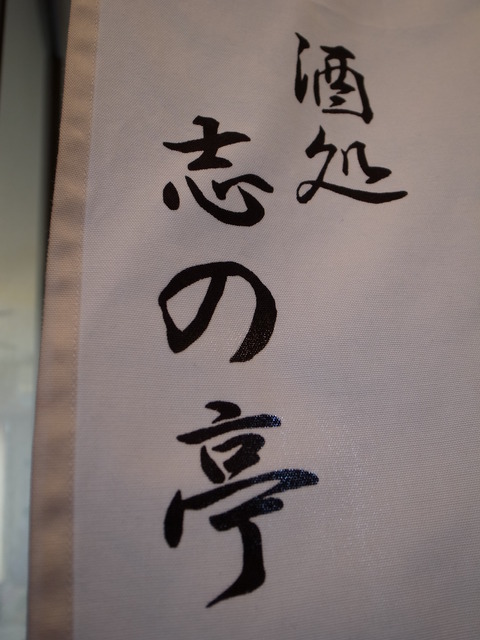 酒処
志の亭